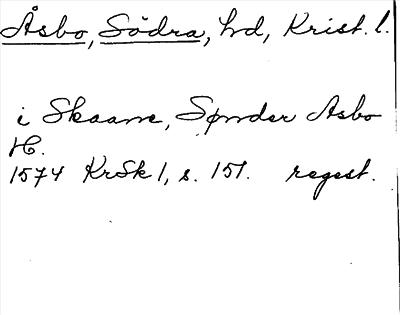 Åsbo, Södra, hd, Krist. l.
i Skaane, Sønder Asbo
H.
1574 KrSk 1, s. 151. regest.